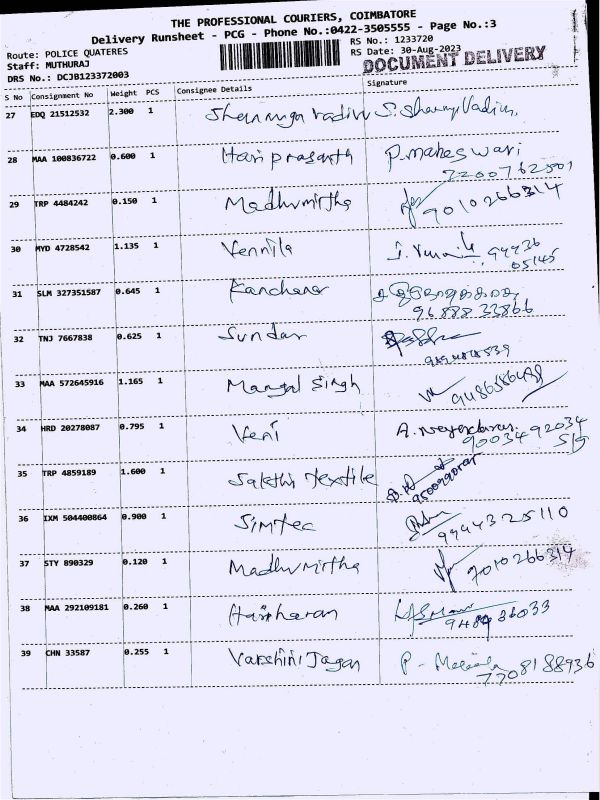 THE PROFESSIONAL COURIERS, COIMBATORE
Delivery Runsheet - PCG - Phone No.:0422-3505555 - Page No.:3
Route: POLICE QUATERES
RS No.: 1233720
Staff: MUTHURAJ
RS Date: 30-Aug-2023
DRS No.: DCJB123372003
DOCUMENT DELIVERY
S No Consignment No Weight PCS Consignee Details Signature
27 EDQ 21512532 2.300 1 Shanmuga vadivu S. Shanmugavadivu
28 MAA 100836722 0.600 1 Hari prasanth P. maheswari
7200762501
29 TRP 4484242 0.150 1 Madhumirtha 9010266314
30 MYD 4728542 1.135 1 Vennila 94436
05145
31 SLM 327351587 0.645 1 Kanchana
96888 33866
32 TNJ 7667838 0.625 1 Sundar
33 MAA 572645916 1.165 1 Mangal Singh
34 HRD 20278087 0.795 1 Veni A.
90034 92034
35 TRP 4859189 1.600 1 Sakthi Textile
36 IXM 504400864 0.900 1 Simtec 9994325110
37 STY 890329 0.120 1 Madhumirtha 9010266314
38 MAA 292109181 0.260 1 Hariharan
39 CHN 33587 0.255 1 Varshini Jagan P.
7708188936